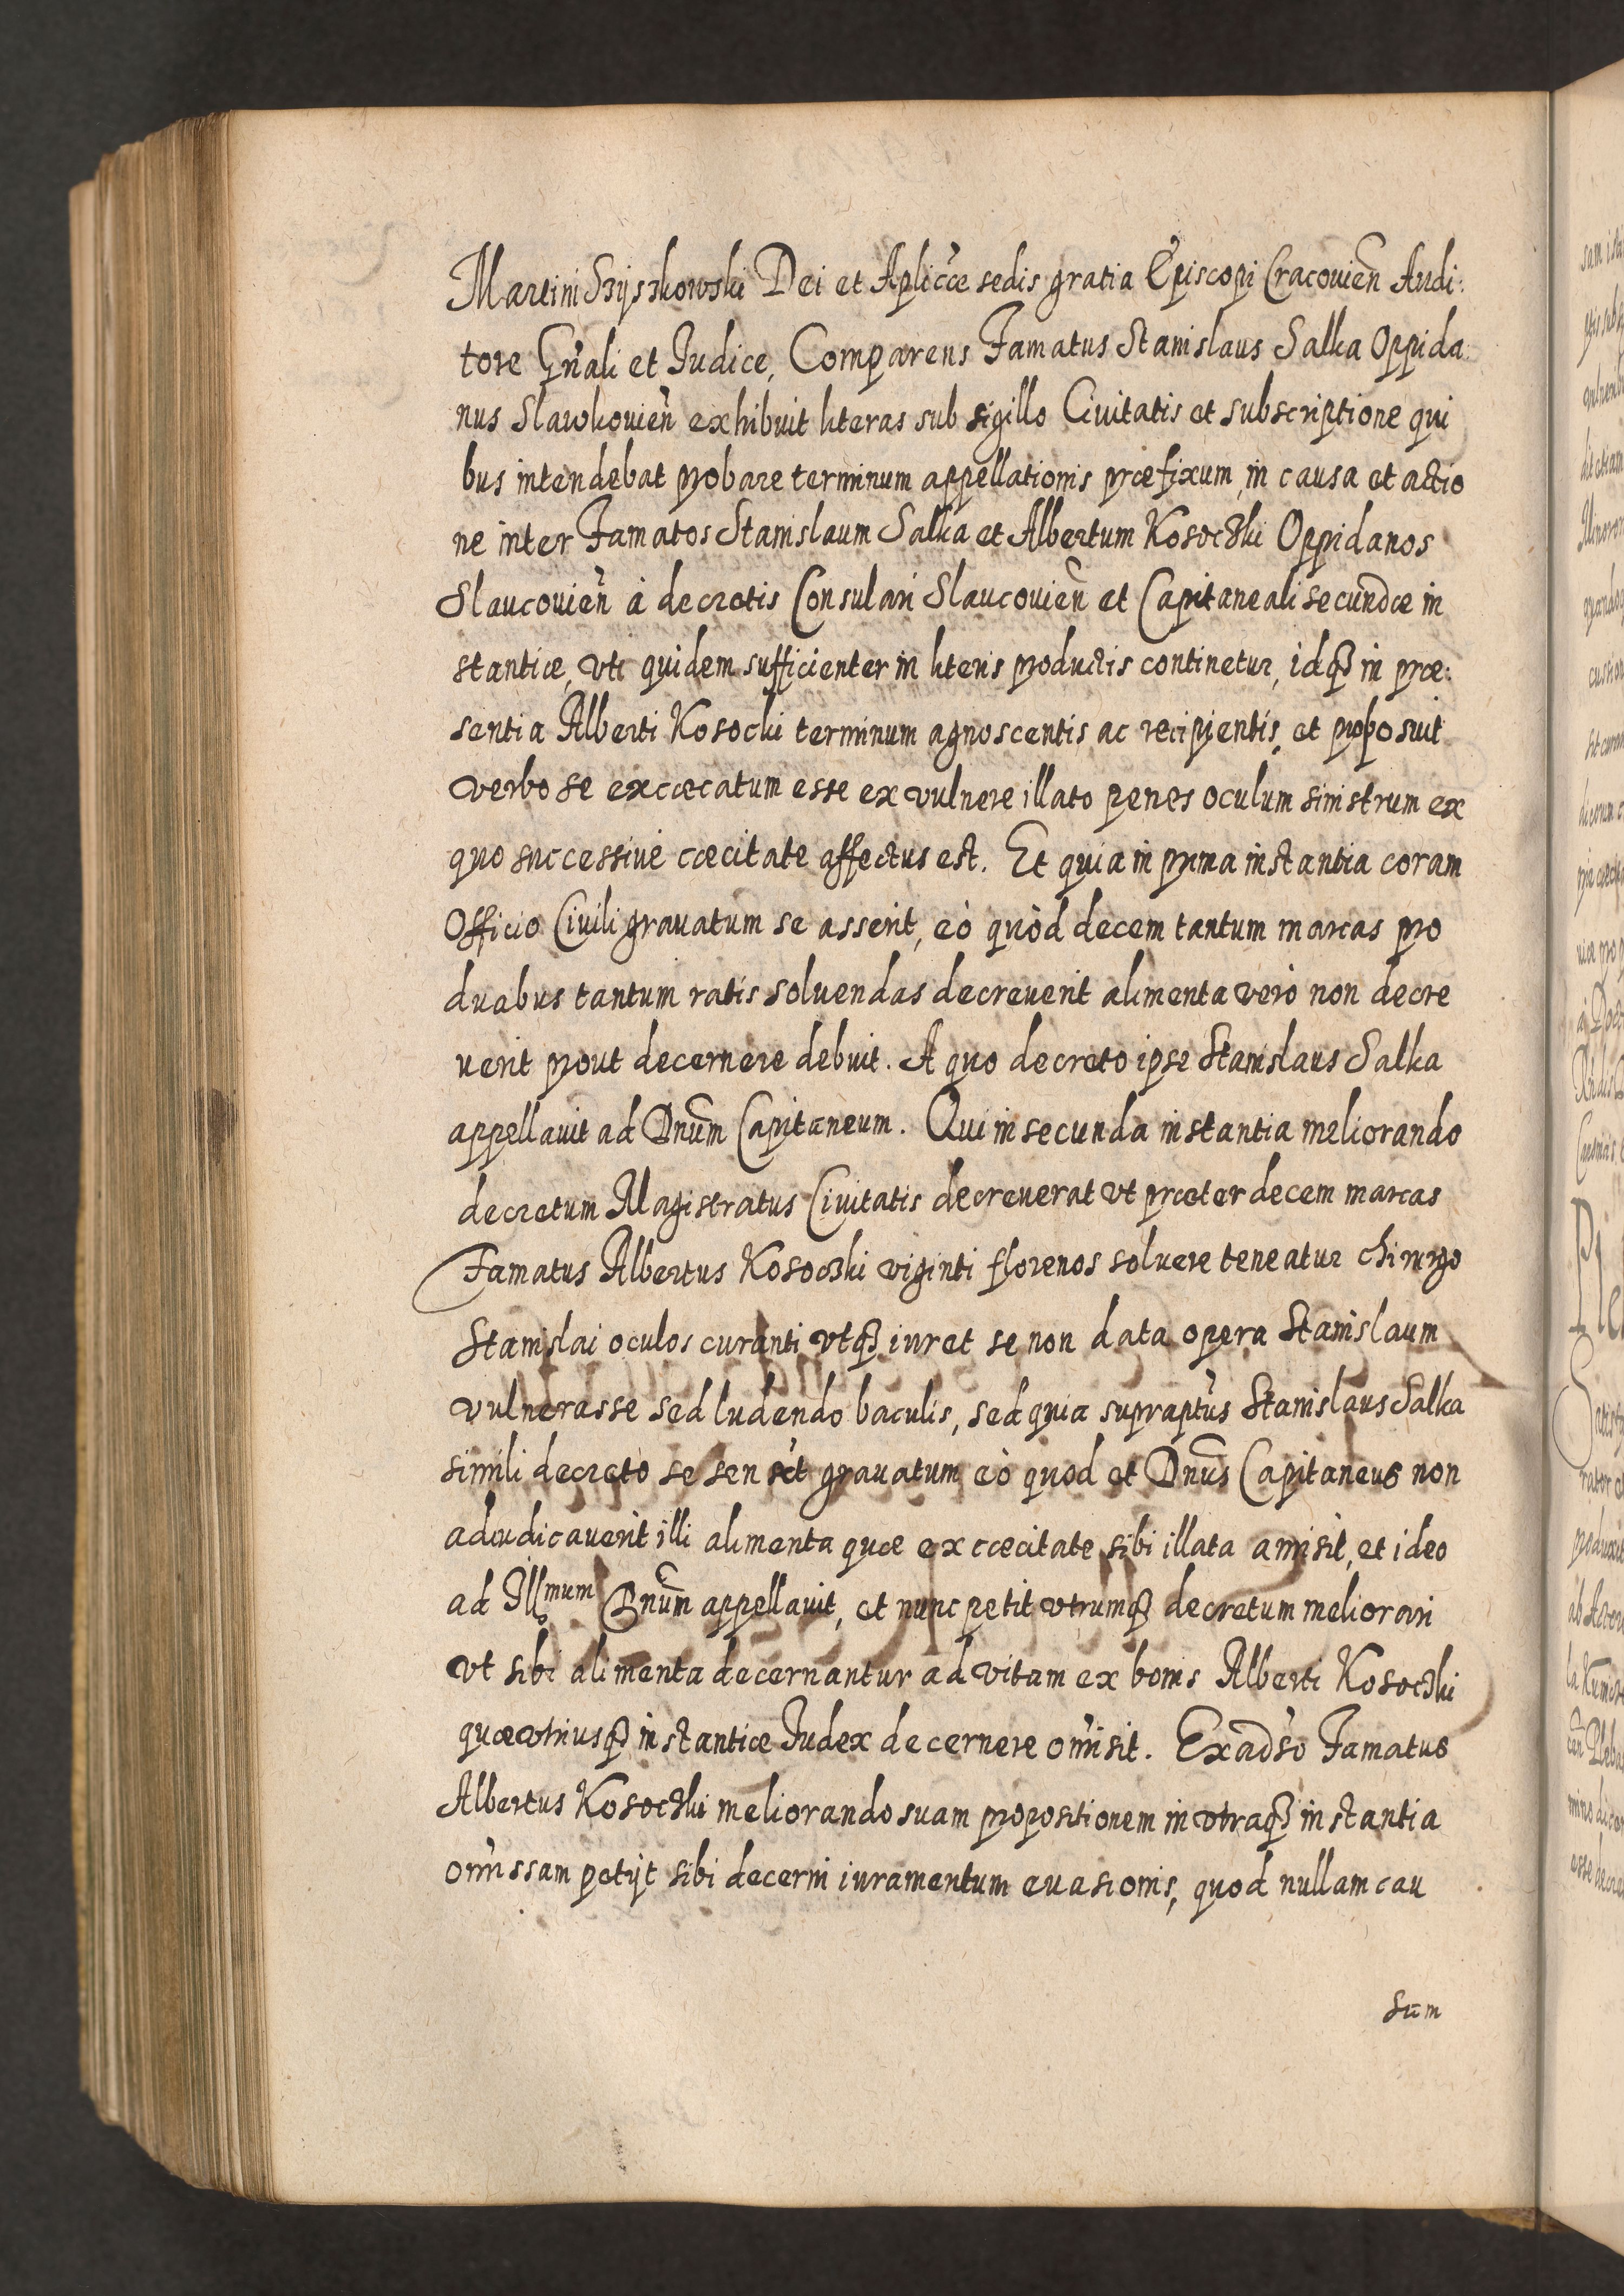 Martini Szyszkowski Dei et Aplicæ sedis gratia Episcopi Cracovien Audi:
tore Gnali et Judice, Comparens Famatus Stanislaus Salka Oppida:
nus Slawkovien exhibuit literas sub sigillo Civitatis et subscriptione qui
bus intendebat probare terminum appellationis præfixum, in causa et actio
ne inter Famatos Stanislaum Salka et Albertum Kosoczki Oppidanos
Slaucovien à decretis Consulari Slaucovien et Capitaneali secundæ in
stantiæ, vti quidem sufficienter in literis productis continetur, idq in præ:
sentia Alberti Kosocki terminum agnoscentis ac recipientis, et proposuit
verbo se excæcatum esse ex vulnere illato penes oculum sinistrum ex
quo successivè cæcitate affectus est. Et quia in prima instantia coram
Officio Civili gravatum se asserit, eò quòd decem tantum marcas pro
duabus tantum ratis solvendas decreverit alimenta verò non decre
verit prout decernere debuit. A quo decreto ipse Stanislaus Salka
appellavit ad Dnum Capitaneum. Qui in secunda instantia meliorando
decretum Magistratus Civitatis decreverat vt præter decem marcas
Famatus Albertus Kosoczki viginti florenos solvere teneatur chirurgo
Stanislai oculos curanti vtq iuret se non data opera Stanislaum
vulnerasse sed ludendo baculis, sed quia supraptus Stanislaus Salka
simili decreto se sensit gravatum eò quod et Dnus Capitaneus non
adiudicaverit illi alimenta quæ ex cæcitate sibi illata amisit, et ideo
ad Illmum Dnum appellavit, et nunc petit vtrumq decretum meliorari
vt sibi alimenta decernantur ad vitam ex bonis Alberti Kosoczki
quæ vtriusq instantiæ Judex decernere omisit. Ex adso Famatus
Albertus Kosoczki meliorando suam propositionem in vtraq instantia
omissam petijt sibi decerni iuramentum evasionis, quod nullam cau
sum